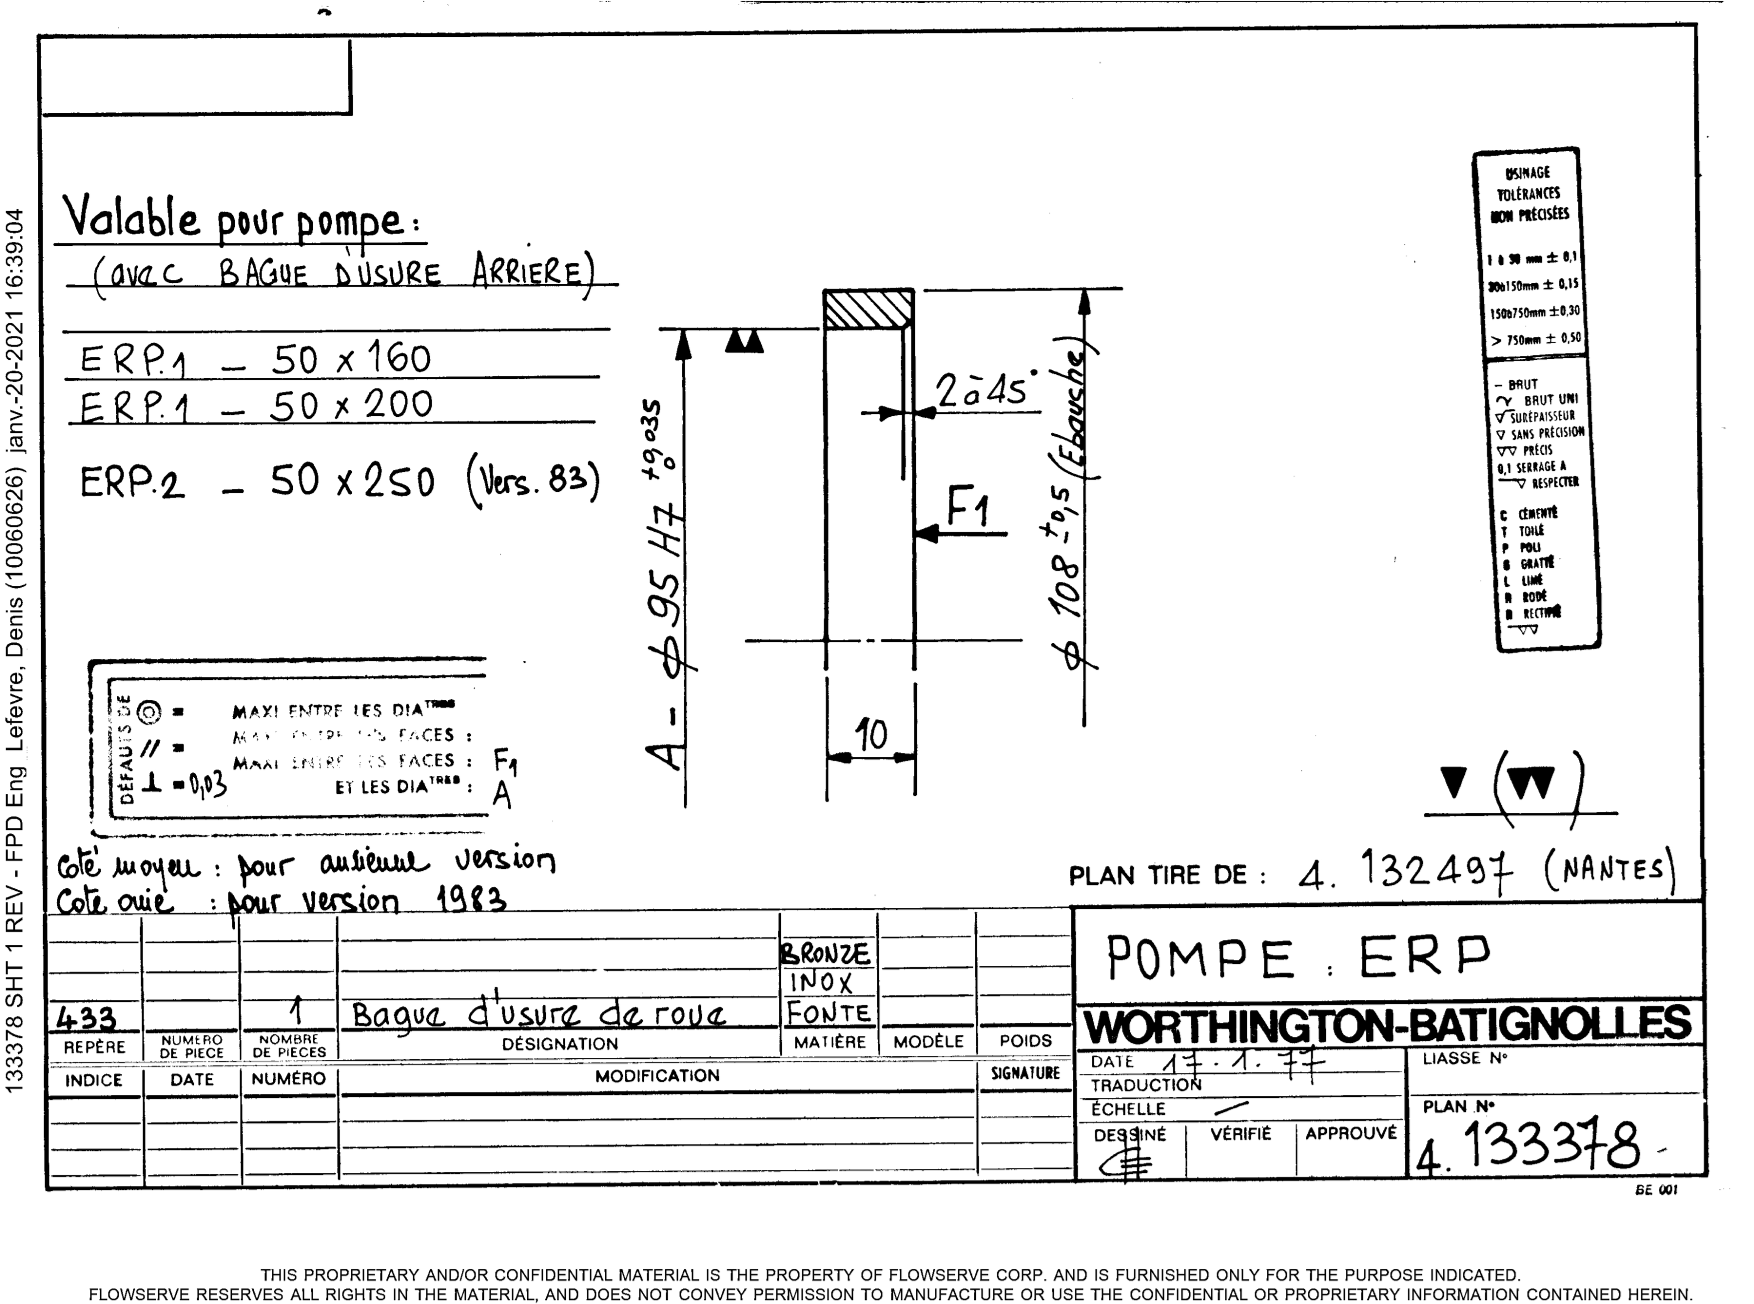 133378 SHT 1 REV - FPD Eng Lefevre, Denis (10060626) janv.-20-2021 16:39:04
Valable pour pompe :
(avec BAGUE D'USURE ARRIERE)
ERP.1 - 50 x 160
ERP.1 - 50 x 200
ERP.2 - 50 x 250 (Vers. 83)
A - ϕ 95 H7 +0,035 0
2 à 45°
F1
ϕ 108 ± 0,5 (Ebauche)
10
USINAGE
TOLÉRANCES
NON PRÉCISÉES
1 à 30 mm ± 0,1
30à150mm ± 0,15
150à750mm ± 0,30
> 750mm ± 0,50
- BRUT
BRUT UNI
SURÉPAISSEUR
▽ SANS PRÉCISION
▽▽ PRÉCIS
0,1 SERRAGE A
▽ RESPECTER
C CÉMENTÉ
T TOILÉ
P POLI
G GRATTÉ
L LIMÉ
R RODÉ
R RECTIFIÉ
▽▽
DÉFAUTS DE
◎ = MAXI ENTRE LES DIATRES
// = MAXI ENTRE LES FACES :
⊥ = 0,03 MAXI ENTRE LES FACES : F1
ET LES DIATRES : A
▼ (▼▼)
Coté moyeu : pour ancienne version
Coté ouie : pour version 1983
PLAN TIRE DE : 4. 132497 (NANTES)
BRONZE
INOX
433 1 Bague d'usure de roue FONTE
REPÈRE NUMÉRO DE PIECE NOMBRE DE PIECES DÉSIGNATION MATIÈRE MODÈLE POIDS
INDICE DATE NUMÉRO MODIFICATION SIGNATURE
POMPE : ERP
WORTHINGTON-BATIGNOLLES
DATE 17.1.77
LIASSE N°
TRADUCTION
ÉCHELLE /
PLAN N°
DESSINÉ VÉRIFIÉ APPROUVÉ
4. 133378 -
BE 001
THIS PROPRIETARY AND/OR CONFIDENTIAL MATERIAL IS THE PROPERTY OF FLOWSERVE CORP. AND IS FURNISHED ONLY FOR THE PURPOSE INDICATED.
FLOWSERVE RESERVES ALL RIGHTS IN THE MATERIAL, AND DOES NOT CONVEY PERMISSION TO MANUFACTURE OR USE THE CONFIDENTIAL OR PROPRIETARY INFORMATION CONTAINED HEREIN.